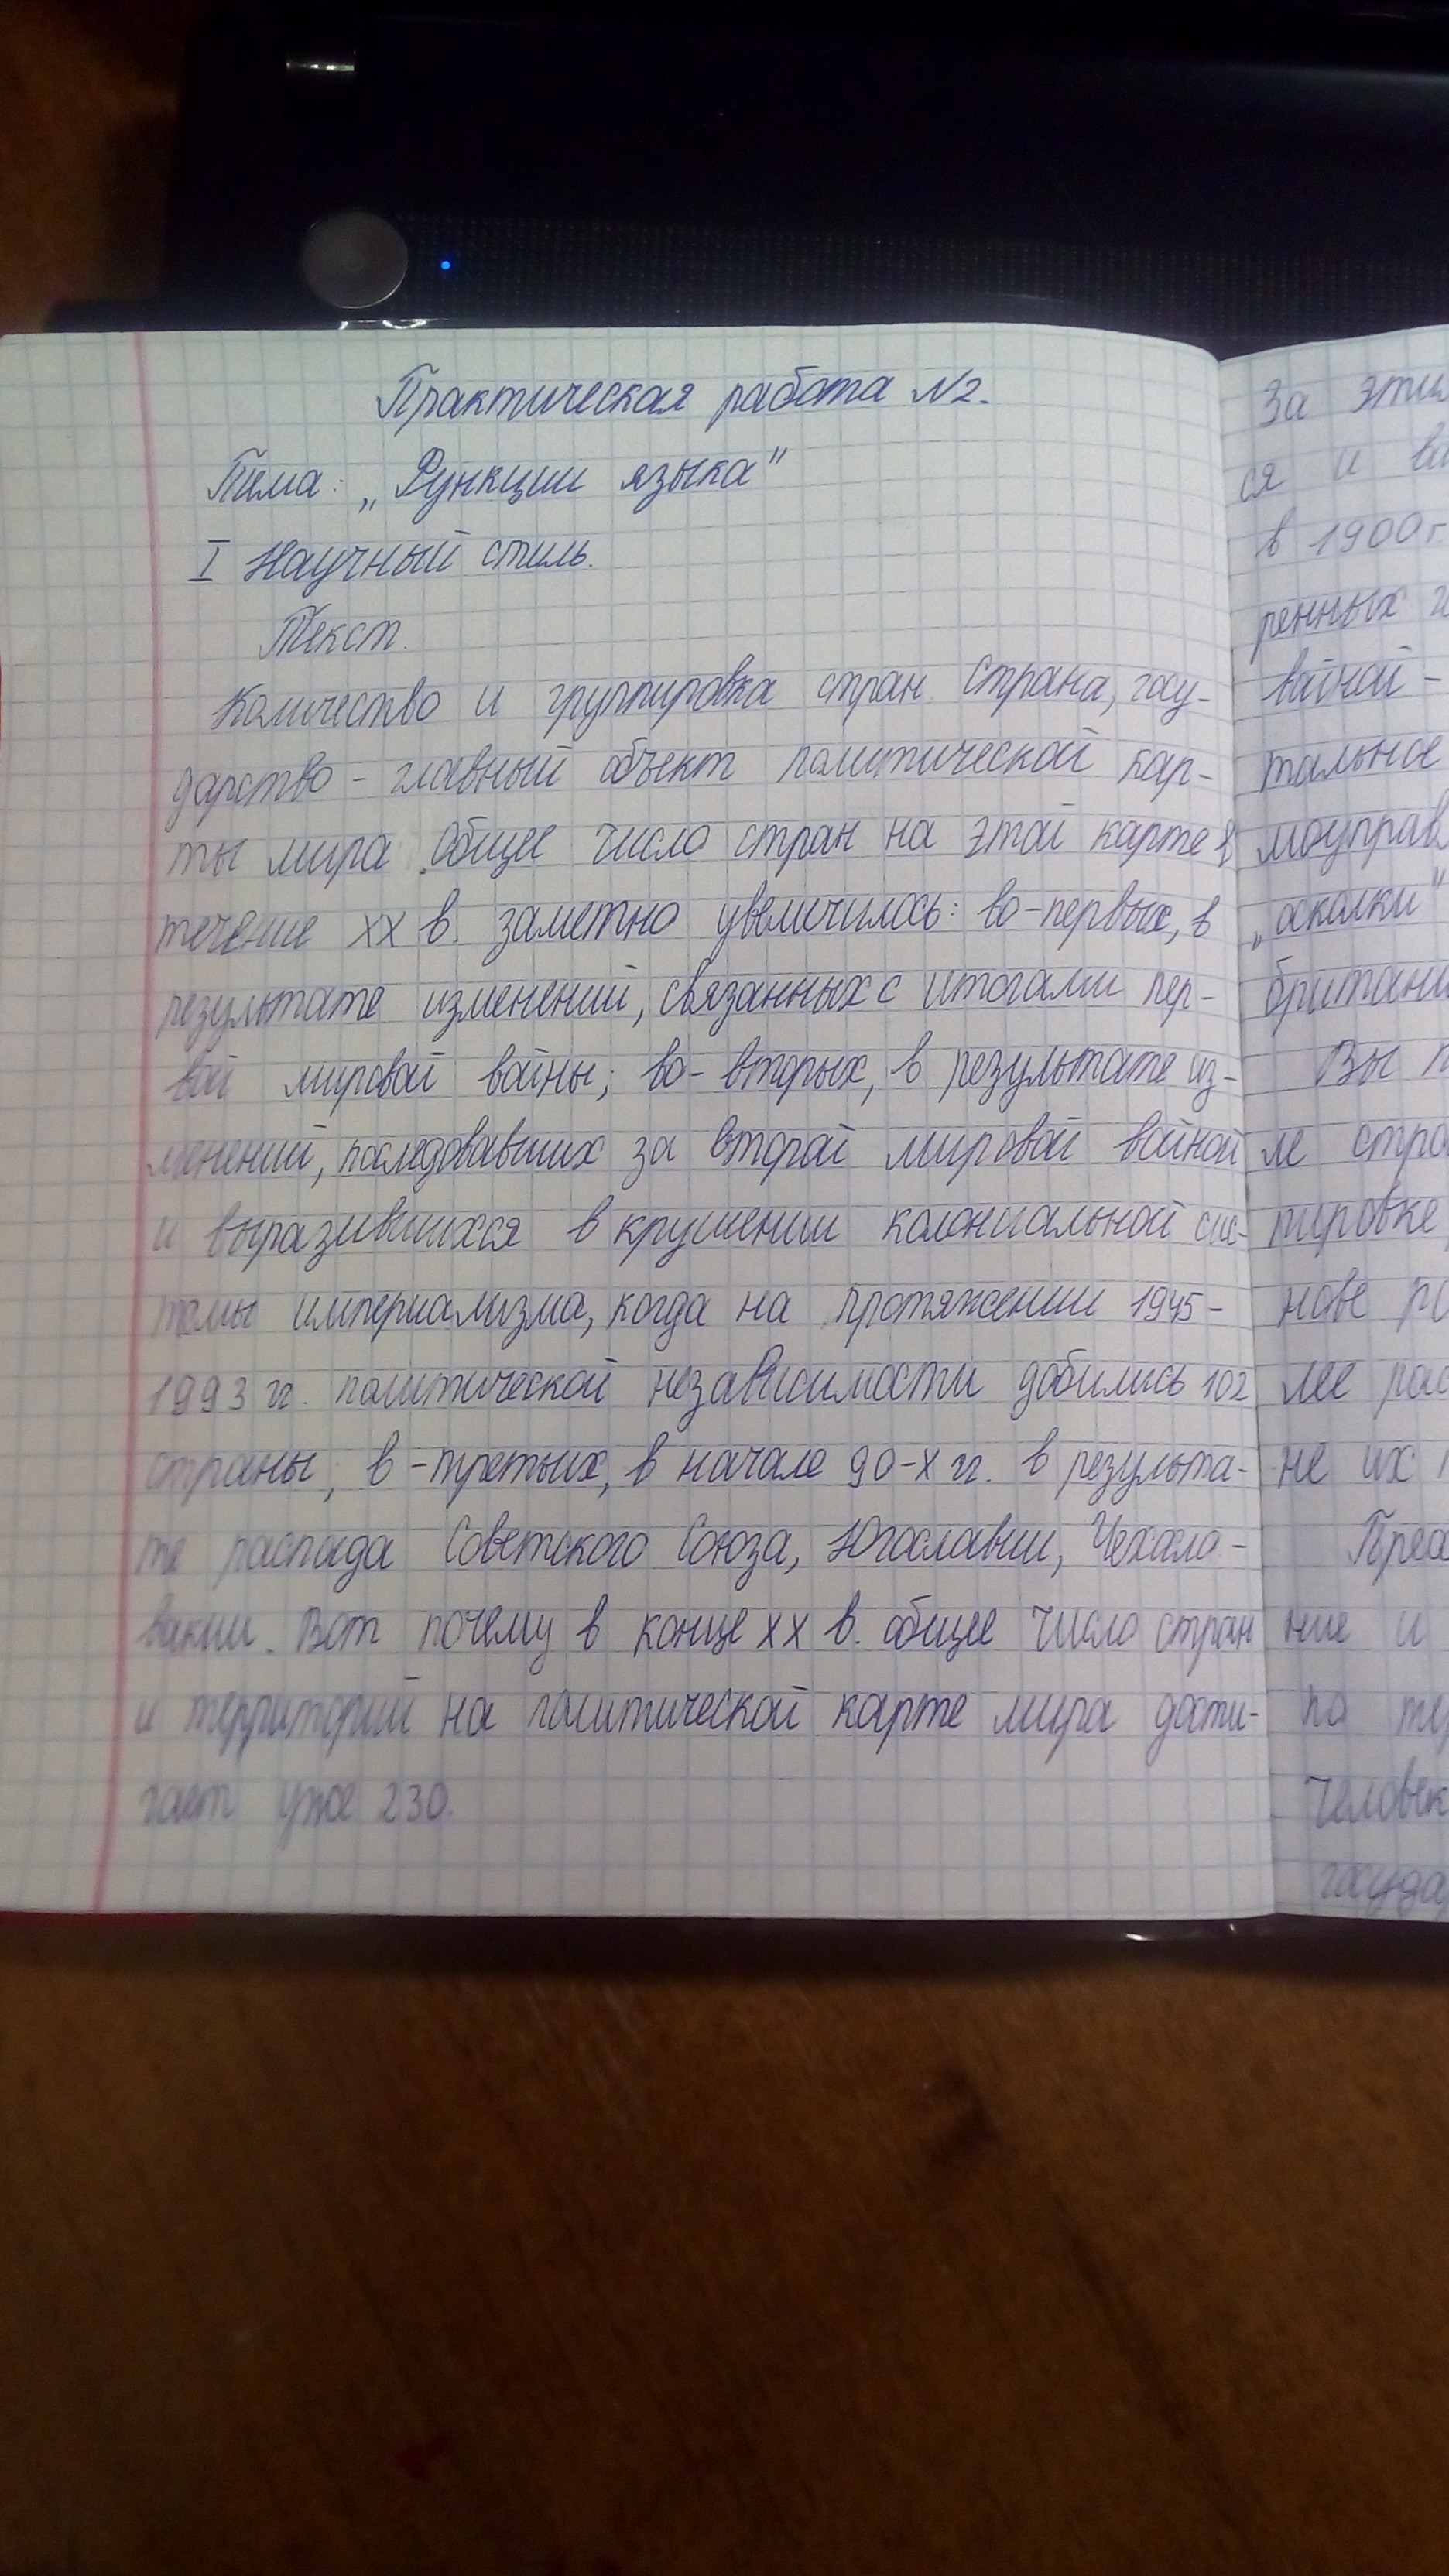 Практическая работа №2.
Тема: „Функции языка"
I Научный стиль.
Текст.
Количество и группировка стран. Страна, госу-
дарство - главный объект политической кар-
ты мира. Общее число стран на этой карте в
течение XX в. заметно увеличилось: во-первых, в
результате изменений, связанных с итогами пер-
вой мировой войны; во-вторых, в результате из-
менений, последовавших за второй мировой войной
и выразившихся в крушении колониальной сис-
темы империализма, когда на протяжении 1945-
1993 гг. политической независимости добились 102
страны, в-третьих, в начале 90-х гг. в результа-
те распада Советского Союза, Югославии, Чехосло-
вакии. Вот почему в конце XX в. общее число стран
и территорий на политической карте мира дости-
гает уже 230.
За этим
ся и
в 1900г.
ренных
вайной -
тальное
моуправ
„осколки"
британи
Вы
ле стра
пировке
нове
лее рас
не их
Преа
ние и
по тер
человек
госуда